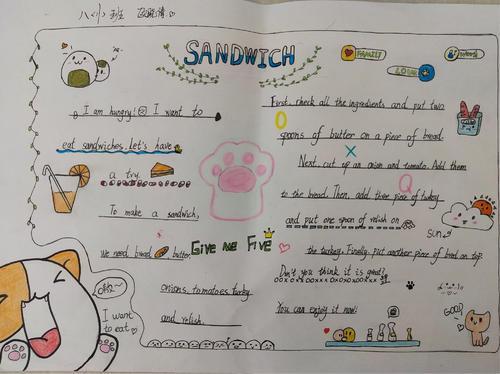 八(小)班
SANDWICH
FAMILY
LOVE
I am hungry! I want to
eat sandwiches. Let's have
a try.
To make a sandwich,
we need bread, butter,
onions, tomatoes, turkey
and relish.
GIVE ME FIVE
First, check all the ingredients and put two
spoons of butter on a piece of bread.
Next, cut up an onion and tomato. Add them
to the bread. Then, add three piece of turkey
and put one spoon of relish on
the turkey. Finally, put another piece of bread on top.
Don't you think it is great?
You can enjoy it now!
SUN
I want
to eat
Good!